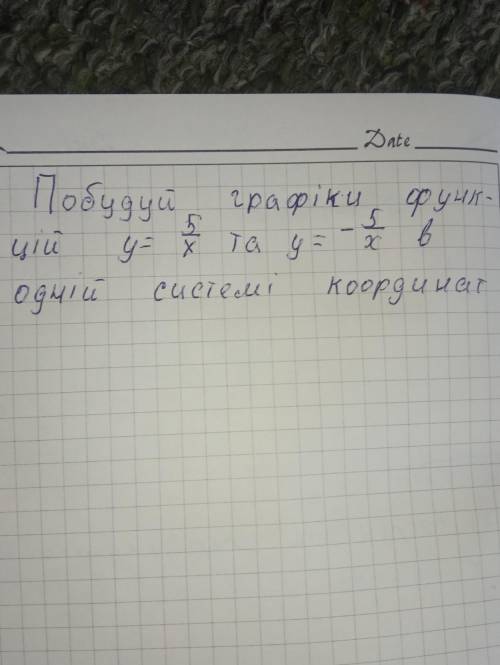 Date
Побудуй графіки функ-
цій y = 5/x та y = - 5/x в
одній системі координат